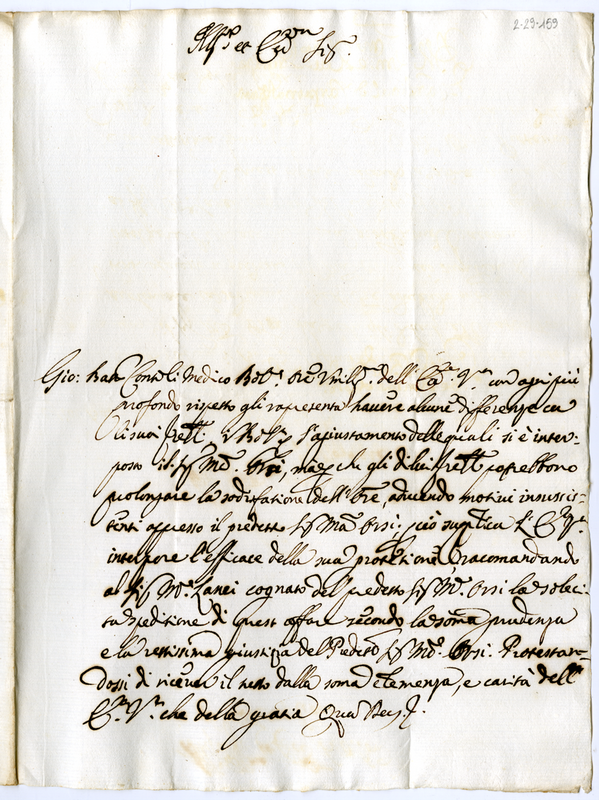 2-29-159
Gio: Batt Consoli Medico Bol. Ore Vmill. dell' Em. V. con ogni più
profondo rispetto gli rapresenta havere alcune differenze con
li suoi fratelli, l'agiustamento delle quali si è inter-
posto il Sig M. Orsi, ma che gli di lui frett. potrebbono
prolongare la sodisfatione dell' Ore, aducendo motivi insussis-
tenti apresso il predetto Sig Ma Orsi: perciò suplica l'E. V.
interpore l'efficace della sua protetione racomandando
al Sig M. Zanei cognato del predetto Sig M. Orsi la soleci-
ta speditione di quest' affare secondo la soma prudenza
e la rettissima giustizia del Predetto Sig M. Orsi. Protestan-
dossi di ricever il tutto dalla soma clemenza, e carità dell'
Em. V. che della gratia Qua Deus.